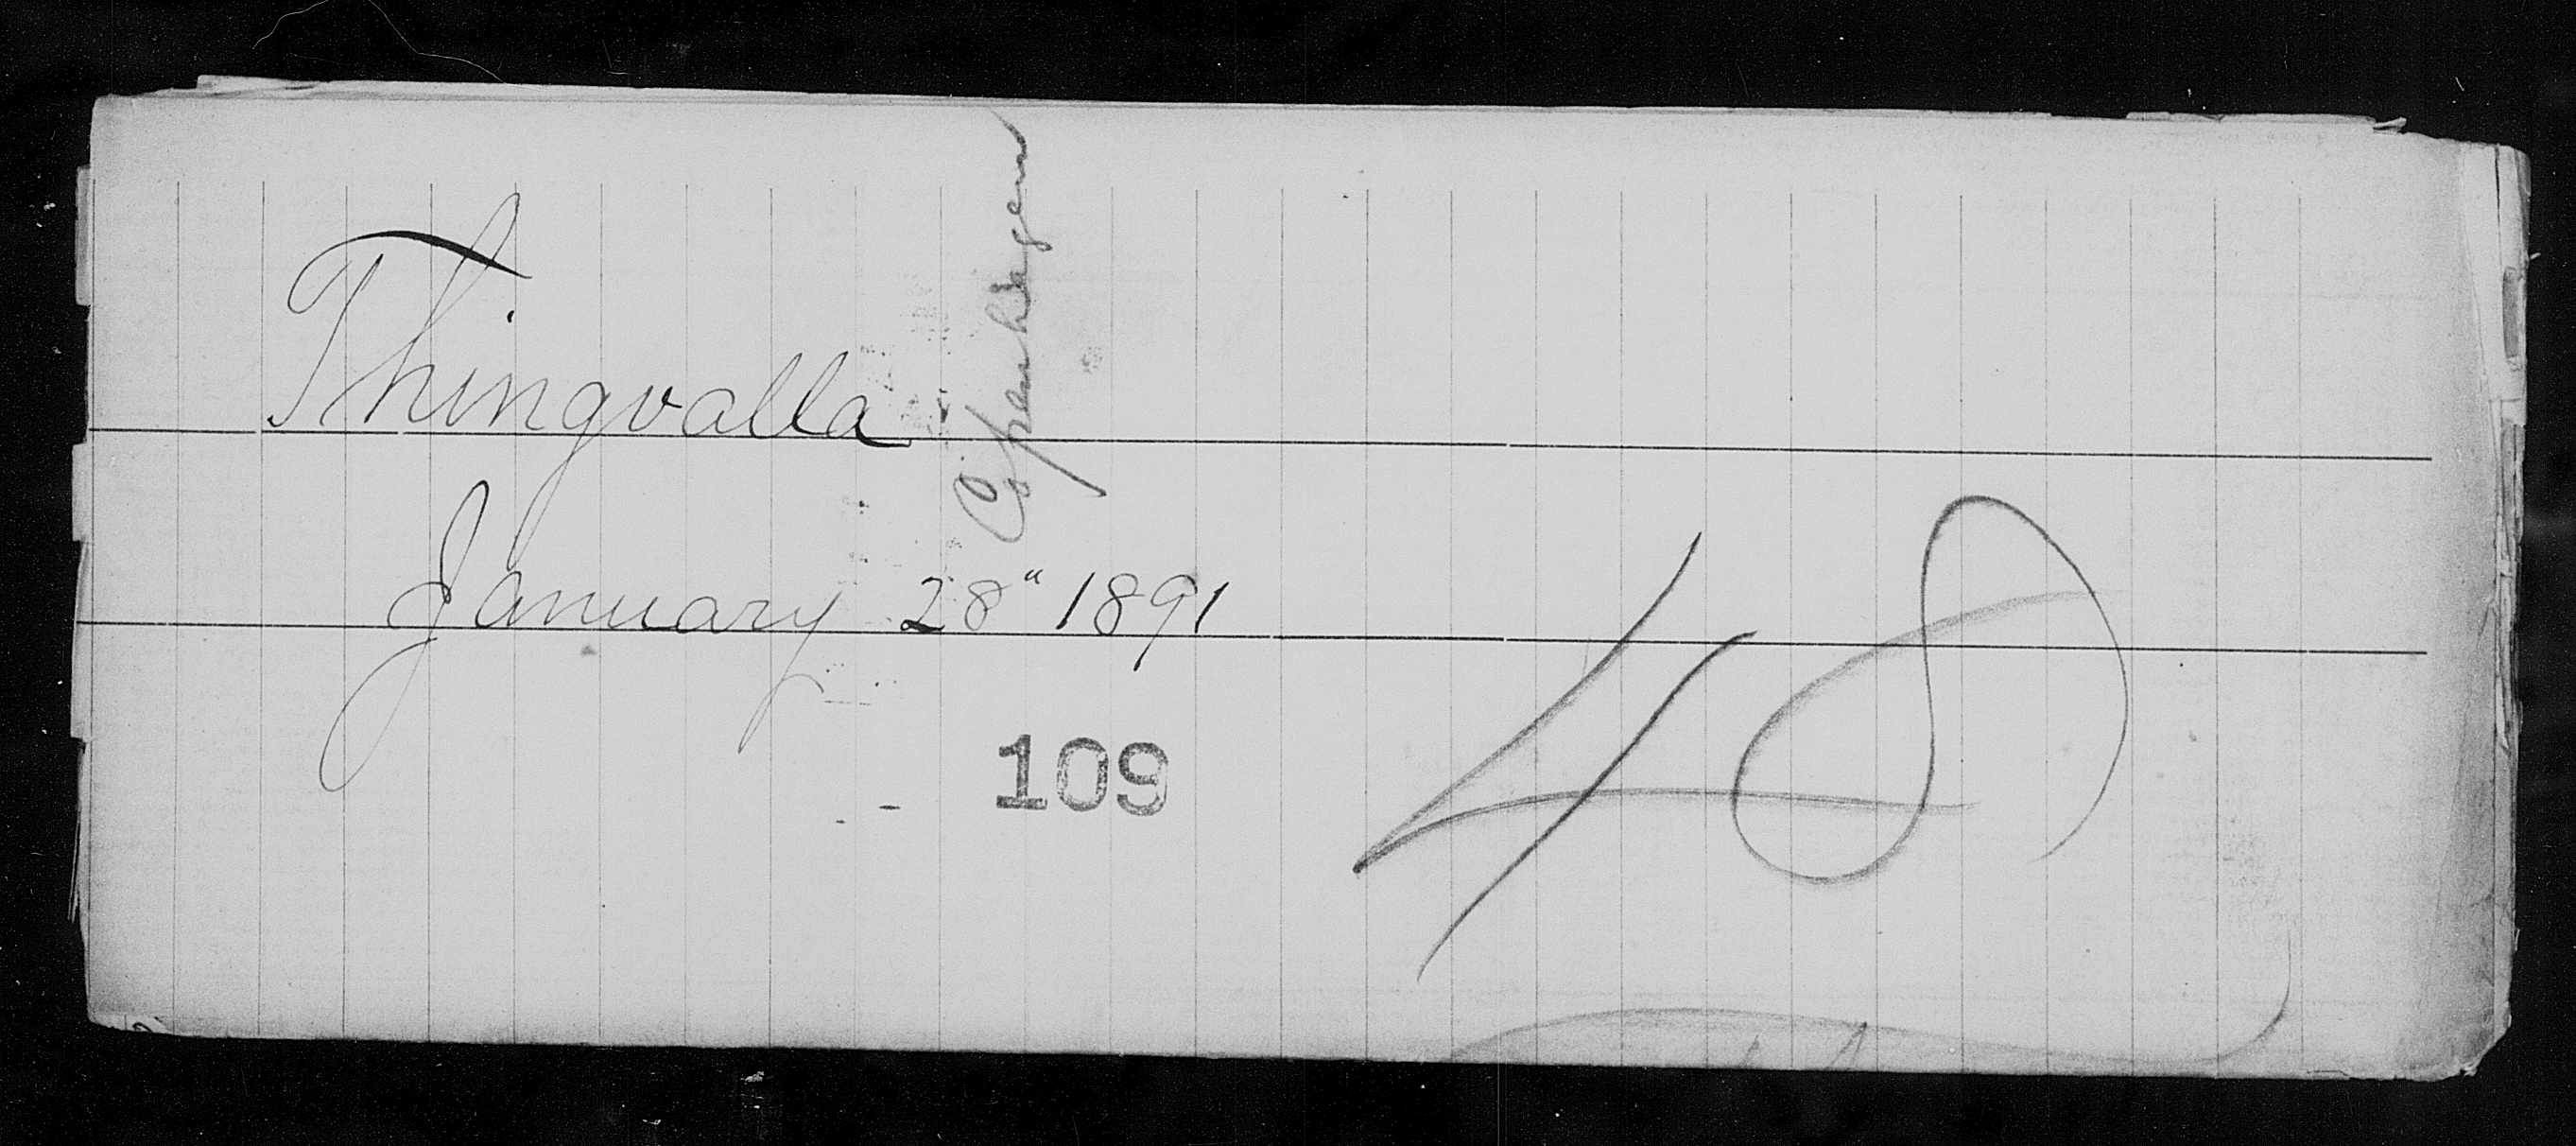 Thingvalla
Copenhagen
January 28" 1891
109
48